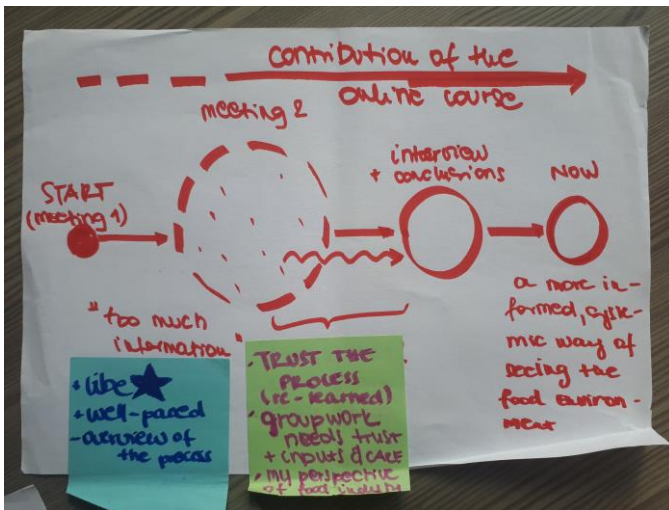 contribution of the
online course
meeting 2
interview
+ conclusions
NOW
START
(meeting 1)
"too much
information"
a more in-
formed, syste-
mic way of
seeing the
food environ-
ment
+ vibe
+ well-paced
- overview of
the process
- TRUST THE
PROCESS
(re-learned)
• group work
needs trust
+ inputs & care
• my perspective
of food industry